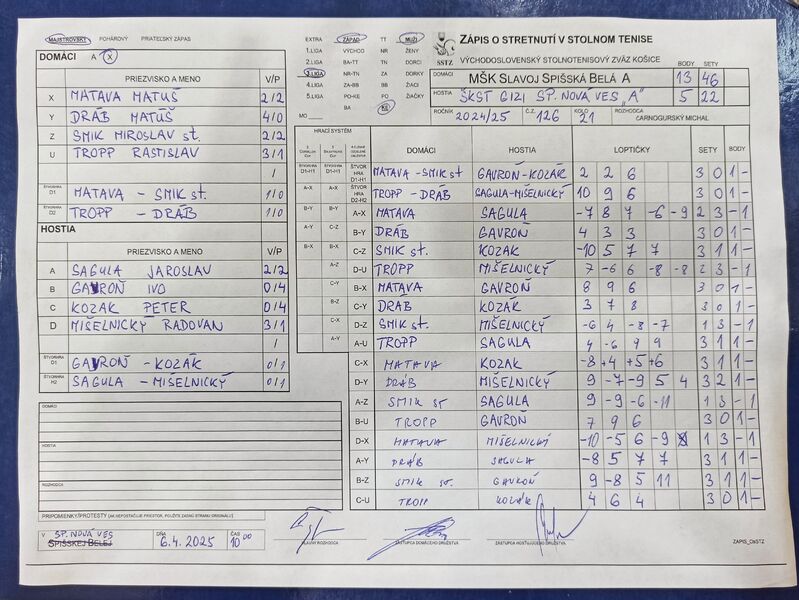 MAJSTROVSKÝ POHÁROVÝ PRIATEĽSKÝ ZÁPAS
DOMÁCI A X
PRIEZVISKO A MENO V/P
X MATAVA MATÚŠ 2/2
Y DRÁB MATÚŠ 4/0
Z SMIK MIROSLAV st. 2/2
U TROPP RASTISLAV 3/1
/
ŠTVORHRA D1 MATAVA - SMIK st. 1/0
ŠTVORHRA D2 TROPP - DRÁB 1/0
HOSTIA
PRIEZVISKO A MENO V/P
A SAGULA JAROSLAV 2/2
B GAVROŇ IVO 0/4
C KOZÁK PETER 0/4
D MIŠELNICKÝ RADOVAN 3/1
/
ŠTVORHRA GAVROŇ - KOZÁK 0/1
ŠTVORHRA H2 SAGULA - MIŠELNICKÝ 0/1
DOMÁCI
HOSTIA
ROZHODCA
PRIPOMIENKY/PROTESTY (AK NEPOSTAČUJE PRIESTOR, POUŽITE ZADNÚ STRANU ORIGINÁLU)
V SP. NOVÁ VES
SPIŠSKEJ BELEJ
DŇA 6.4. 2025
ČAS 10 00
EXTRA ZÁPAD TT MUŽI
1.LIGA VÝCHOD NR ŽENY
2.LIGA BA-TT TN DORCI
3.LIGA NR-TN ZA DORKY
4.LIGA ZA-BB BB ŽIACI
5.LIGA PO-KE PO ŽIAČKY
BA KE
MO
SSTZ
ZÁPIS O STRETNUTÍ V STOLNOM TENISE
VÝCHODOSLOVENSKÝ STOLNOTENISOVÝ ZVÄZ KOŠICE
BODY SETY
DOMÁCI MŠK SLAVOJ SPIŠSKÁ BELÁ A 13 46
HOSTIA ŠKST GIZI SP. NOVÁ VES "A" 5 22
ROČNÍK 2024/25 Č.Z. 126 KOLO 21 ROZHODCA CARNOGURSKÝ MICHAL
HRACÍ SYSTÉM
DOMÁCI HOSTIA LOPTIČKY SETY BODY
ŠTVORHRA D1-H1 MATAVA - SMIK st GAVROŇ - KOZÁK 2 2 6 3 0 1 -
ŠTVORHRA D2-H2 TROPP - DRÁB SAGULA - MIŠELNICKÝ 10 9 6 3 0 1 -
A-X MATAVA SAGULA -7 8 7 -6 -9 2 3 - 1
B-Y DRÁB GAVROŇ 4 3 3 3 0 1 -
C-Z SMIK st. KOZÁK -10 5 7 7 3 1 1 -
D-U TROPP MIŠELNICKÝ 7 -6 6 -8 -8 2 3 - 1
B-X MATAVA GAVROŇ 8 9 6 3 0 1 -
C-Y DRÁB KOZÁK 3 7 8 3 0 1 -
D-Z SMIK st. MIŠELNICKÝ -6 4 -8 -7 1 3 - 1
A-U TROPP SAGULA 4 -6 9 9 3 1 1 -
C-X MATAVA KOZÁK -8 +4 +5 +6 3 1 1 -
D-Y DRÁB MIŠELNICKÝ 9 -7 -9 5 4 3 2 1 -
A-Z SMIK st SAGULA 9 -9 -6 -11 1 3 - 1
B-U TROPP GAVROŇ 7 9 6 3 0 1 -
D-X MATAVA MIŠELNICKÝ -10 -5 6 -9 1 3 - 1
A-Y DRÁB SAGULA -8 5 7 7 3 1 1 -
B-Z SMIK st. GAVROŇ 9 -8 5 11 3 1 1 -
C-U TROPP KOZÁK 4 6 4 3 0 1 -
HLAVNÝ ROZHODCA
ZÁSTUPCA DOMÁCEHO DRUŽSTVA
ZÁSTUPCA HOSŤUJÚCEHO DRUŽSTVA
ZAPIS_CbSTZ